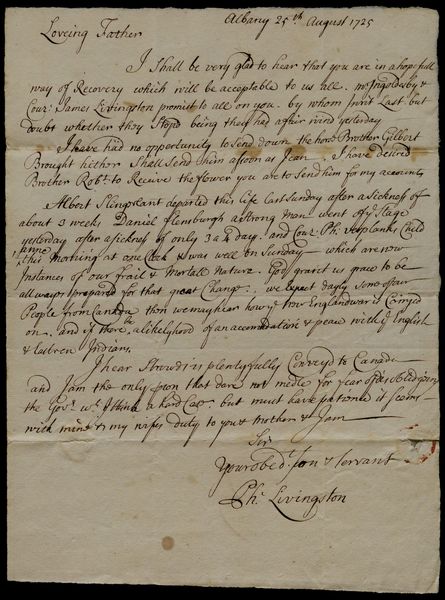 Albany 25th August 1725
Loveing Father
I Shall be very glad to hear that you are in a hopefull
way of Recovery which will be acceptable to us all. mr Ingoldsby &
Couz: James Livingston promist to call on you. by whom I writ Last but
doubt whether they Stopd being they had a fair wind yesterday
I have had no opportunity to Send down the horse Brother Gilbert
Brought hither Shall Send him assoon as I can. I have desired
Brother Robt. to Receive the flower you are to Send him for my account
Albert Slengerlant departed this Life last Sunday after a Sickness of
about 3 weeks Daniel flensburgh a Strong man went of ye Stage
yesterday after a sickness of only 3 a 4 days. and Couz: Ph: verplanks Child
Anne this Morning at one Clock & was well on Sunday which are now
Instances of our fraile & Mortall Nature. God grant us grace to be
all wayes prepared for that great Change. we Expect dayly Some of our
People from Canada then we may hear how ye new England warr is Carryed
on. and if there be a likelyhood of an accomodation & peace with ye English
& Eastren Indians.
I hear Strouds is plentyfully Convey'd to Canada
and I am the only person that dare not medle for fear of
the Govr. wch I think a hard Case but must have patience it Seems
with mine & my wifes duty to you & mother I am
Sir
Your obedt. Son & Servant
Ph: Livingston